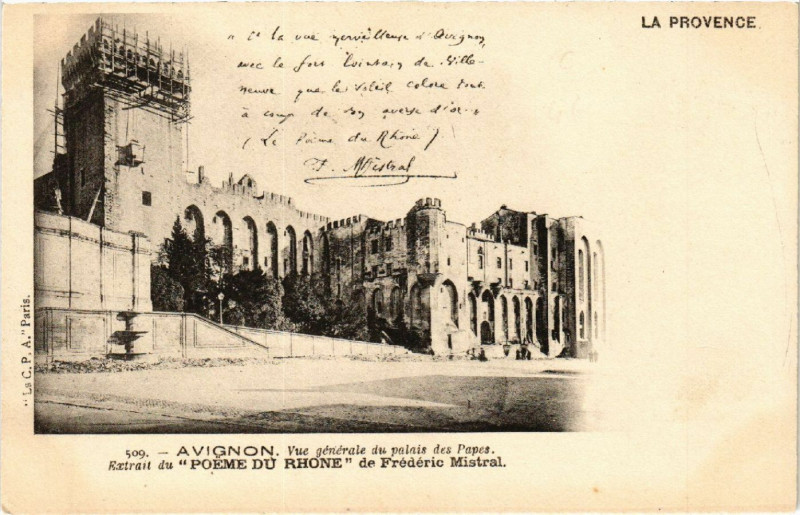 LA PROVENCE
" C'est la vue merveilleuse d'Avignon
avec le fort lointain de Ville-
neuve que le soleil colore tout
à coup de son averse d'or. "
( Le Poème du Rhône )
F. Mistral
" LA C. P. A." Paris.
509. — AVIGNON. Vue générale du palais des Papes.
Extrait du "POËME DU RHONE" de Frédéric Mistral.